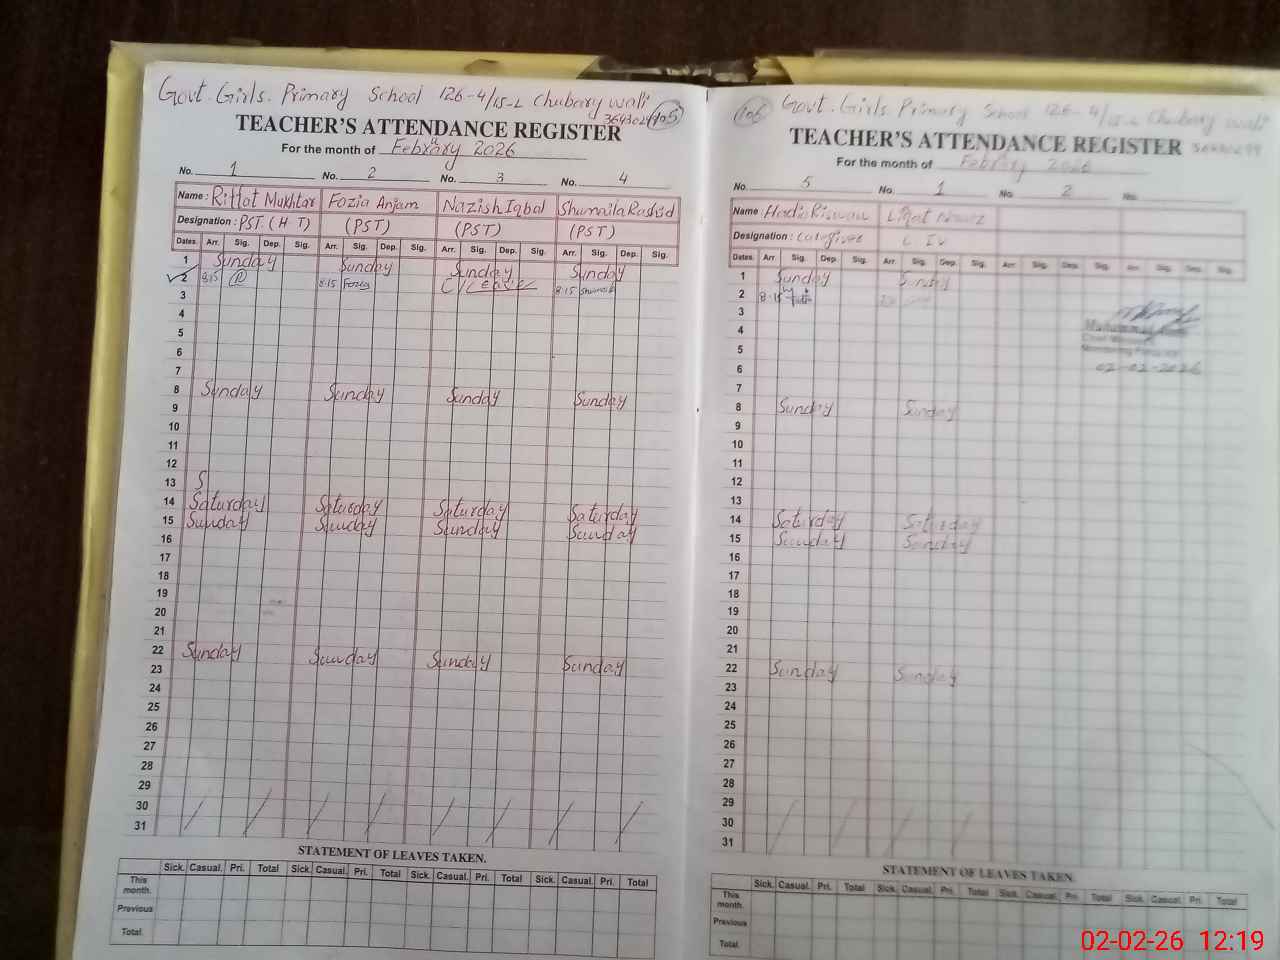 Govt. Girls. Primary School 126-4/15-L Chubary wali
105
TEACHER'S ATTENDANCE REGISTER
For the month of Febrary 2026
No. 1 No. 2 No. 3 No. 4
Name : Riffat Mukhtar Fozia Anjam Nazish Iqbal Shumaila Rashid
Designation : PST. (H T) (PST) (PST) (PST)
Dates. Arr. Sig. Dep. Sig. Arr. Sig. Dep. Sig. Arr. Sig. Dep. Sig. Arr. Sig. Dep. Sig.
1 Sunday Sunday Sunday Sunday
2 8:15 8:15 Fozia C/Leave 8:15
3
4
5
6
7
8 Sunday Sunday Sunday Sunday
9
10
11
12
13 S
14 Saturday Saturday Saturday Saturday
15 Sunday Sunday Sunday Sunday
16
17
18
19
20
21
22 Sunday Sunday Sunday Sunday
23
24
25
26
27
28
29
30
31
STATEMENT OF LEAVES TAKEN.
Sick. Casual. Pri. Total Sick. Casual. Pri. Total Sick. Casual. Pri. Total Sick. Casual. Pri. Total
This month.
Previous
Total.
106
Govt. Girls Primary School 126-4/15-L Chubary wali
TEACHER'S ATTENDANCE REGISTER
For the month of Febrary 2026
No. 5 No. 1 No. 2 No.
Name : Liqat Nawaz
Designation : C IV
Dates. Arr Sig. Dep. Sig. Arr. Sig. Dep. Sig. Arr. Sig. Dep. Sig. Arr. Sig. Dep. Sig.
1 Sunday Sunday
2 8:15
3
4
5
6
02-02-2026
7
8 Sunday Sunday
9
10
11
12
13
14 Saturday Saturday
15 Sunday Sunday
16
17
18
19
20
21
22 Sunday Sunday
23
24
25
26
27
28
29
30
31
STATEMENT OF LEAVES TAKEN.
Sick. Casual. Pri. Total Sick. Casual. Pri. Total Sick. Casual. Pri. Total Sick. Casual. Pri. Total
This month.
Previous
Total.
02-02-26 12:19